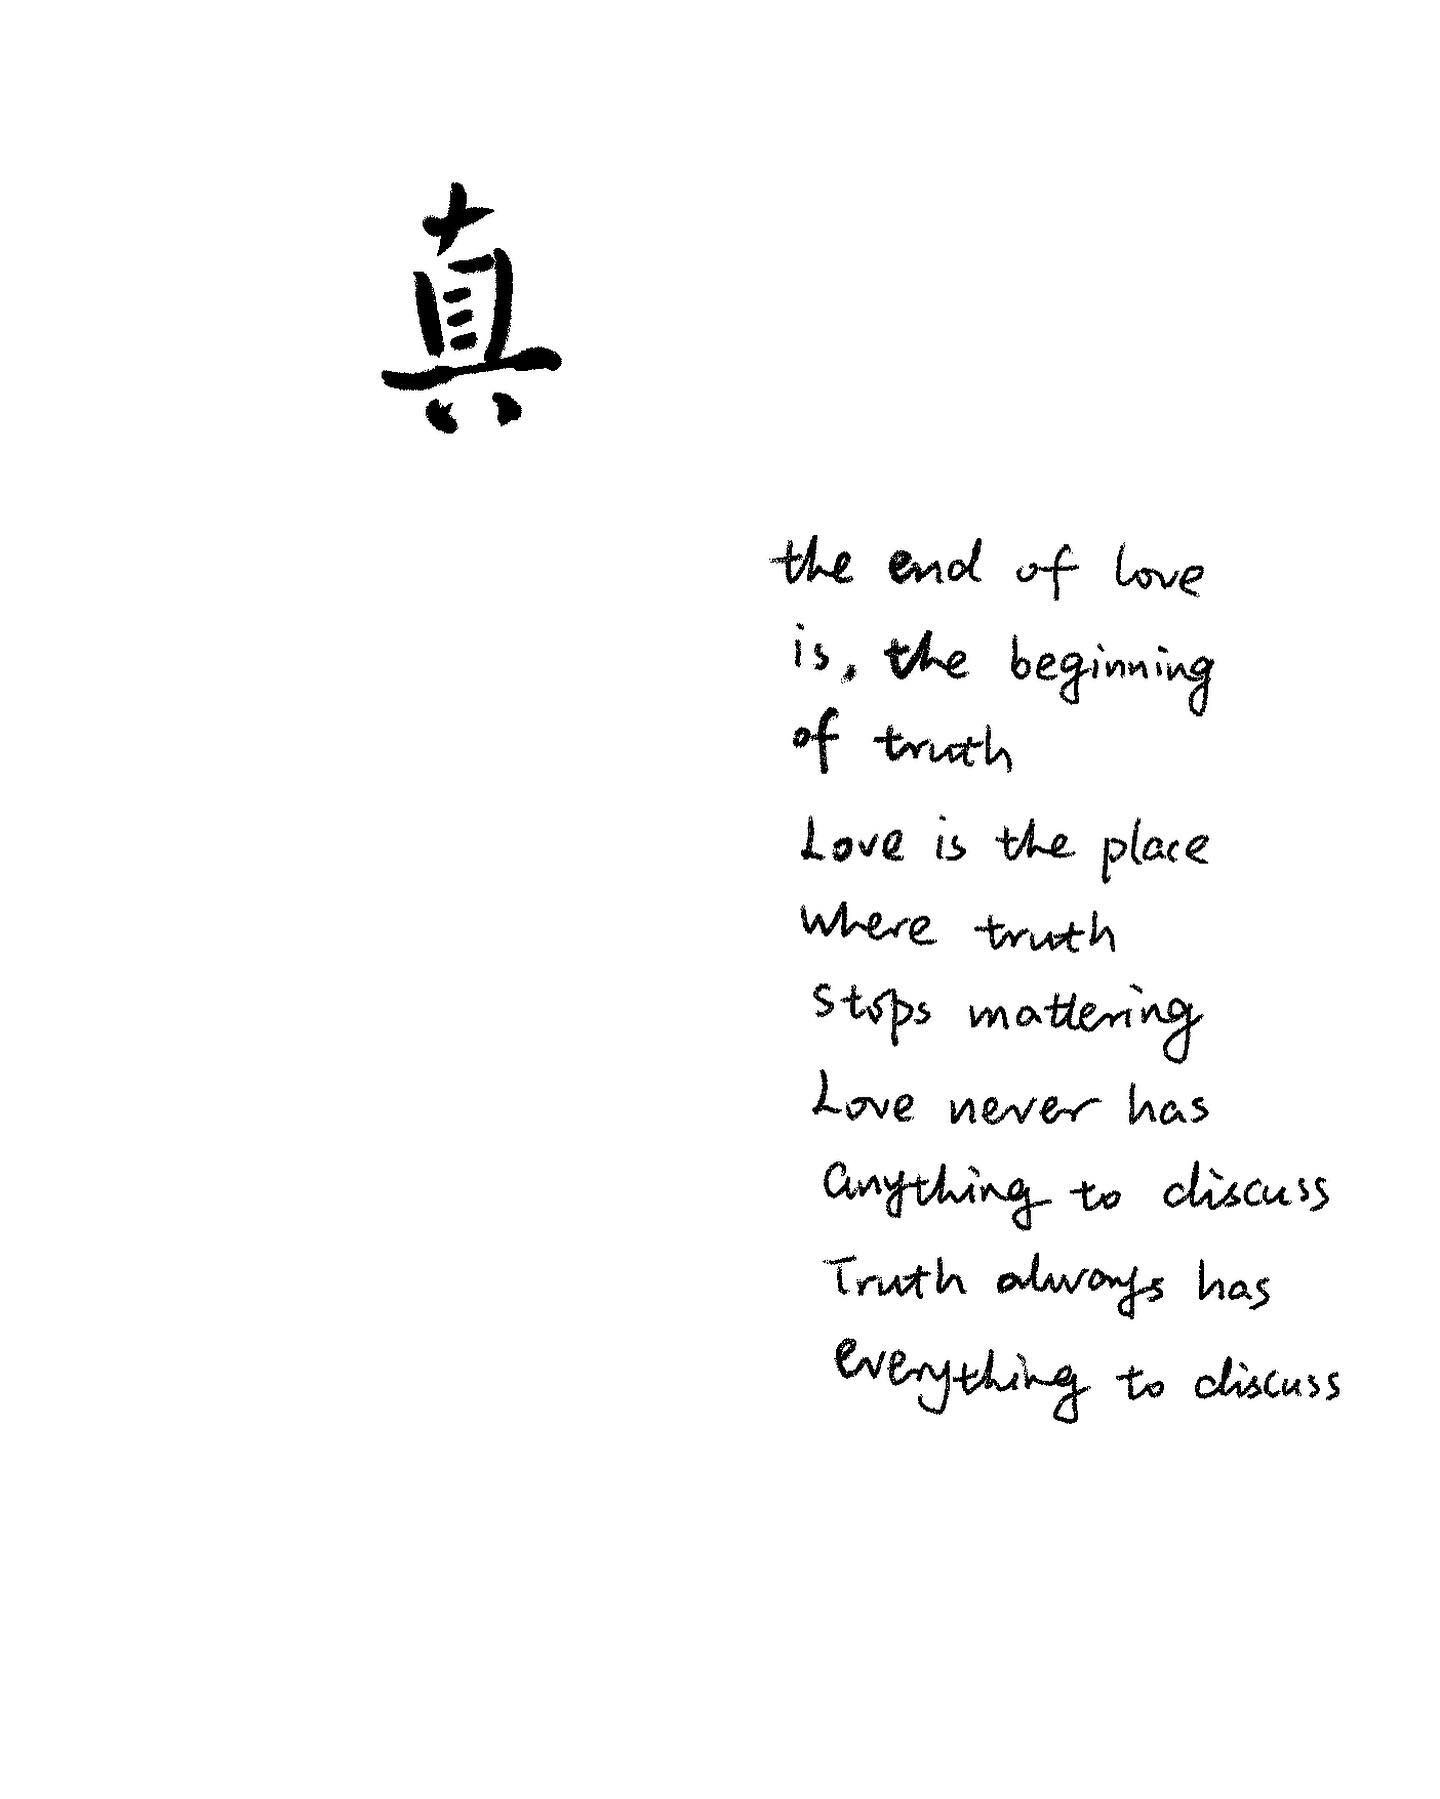 真
the end of love
is, the beginning
of truth
Love is the place
where truth
stops mattering
Love never has
anything to discuss
Truth always has
everything to discuss